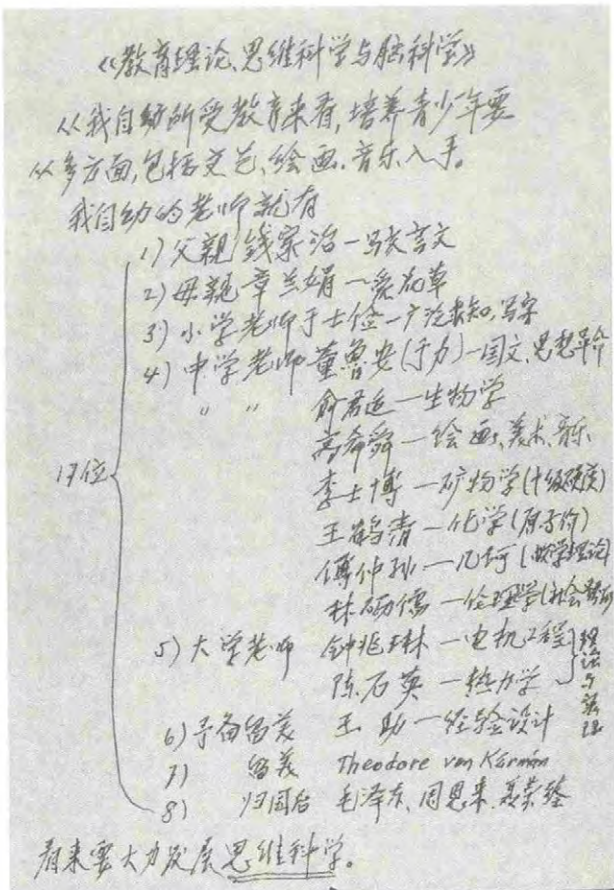 《教育理论、思维科学与脑科学》
从我自幼所受教育来看,培养青少年要
从多方面,包括文艺、绘画、音乐入手。
我自幼的老师就有
1) 父親 钱家治—写文言文
2) 母親 章兰娟—爱花草
3) 小学老师于士俭—广泛求知,写字
4) 中学老师 董鲁安(于力)—国文、思想革命
〃 〃 俞君适—生物学
高希舜—绘画、美术、音乐
李士博—矿物学(十级硬度)
王鹤清—化学(原子价)
傅仲孙—几何(数学理论)
林砺儒—伦理学(社会
17位
5) 大学老师 钟兆琳—电机工程
陈石英—热力学
理论与实理
6) 予备留美 王助—经验设计
7) 留美 Theodore von Kármán
8) 归国后 毛泽东、周恩来、聂荣臻
看来要大力发展思维科学。